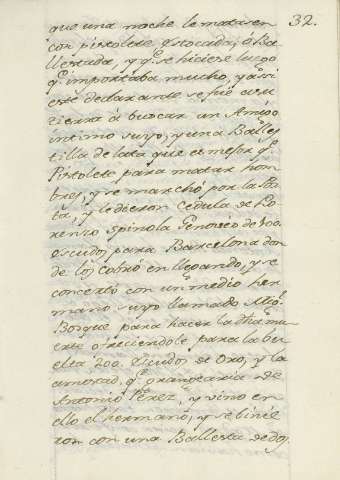 32.
que una noche le matasen
con pistolete estocada, ó Ba-
llestada, y q.e se hiciese luego
q.e importaba mucho, y assi
este declarante se fué a su
tierra á buscar un Amigo
intimo suyo, y una Balles
tilla de lata que es mejor q.e
Pistolete para matar hom
bres, y se marchó por la Pos
ta, y le dieron Cedula de Lo-
renzo Spinola Genovés de 100
escudos para Barcelona don
de los cobró en llegando, y se
concertó con un medio her
mano suyo llamado
Bosque para hacer la dha mu
erte ofreciendole para la bu
elta 200. Escudos de Oro, y la
amistad q.e grangearia de
Antonio Perez, y vino en
ello el hermano, y se vinie
ron con una Ballesta de dos